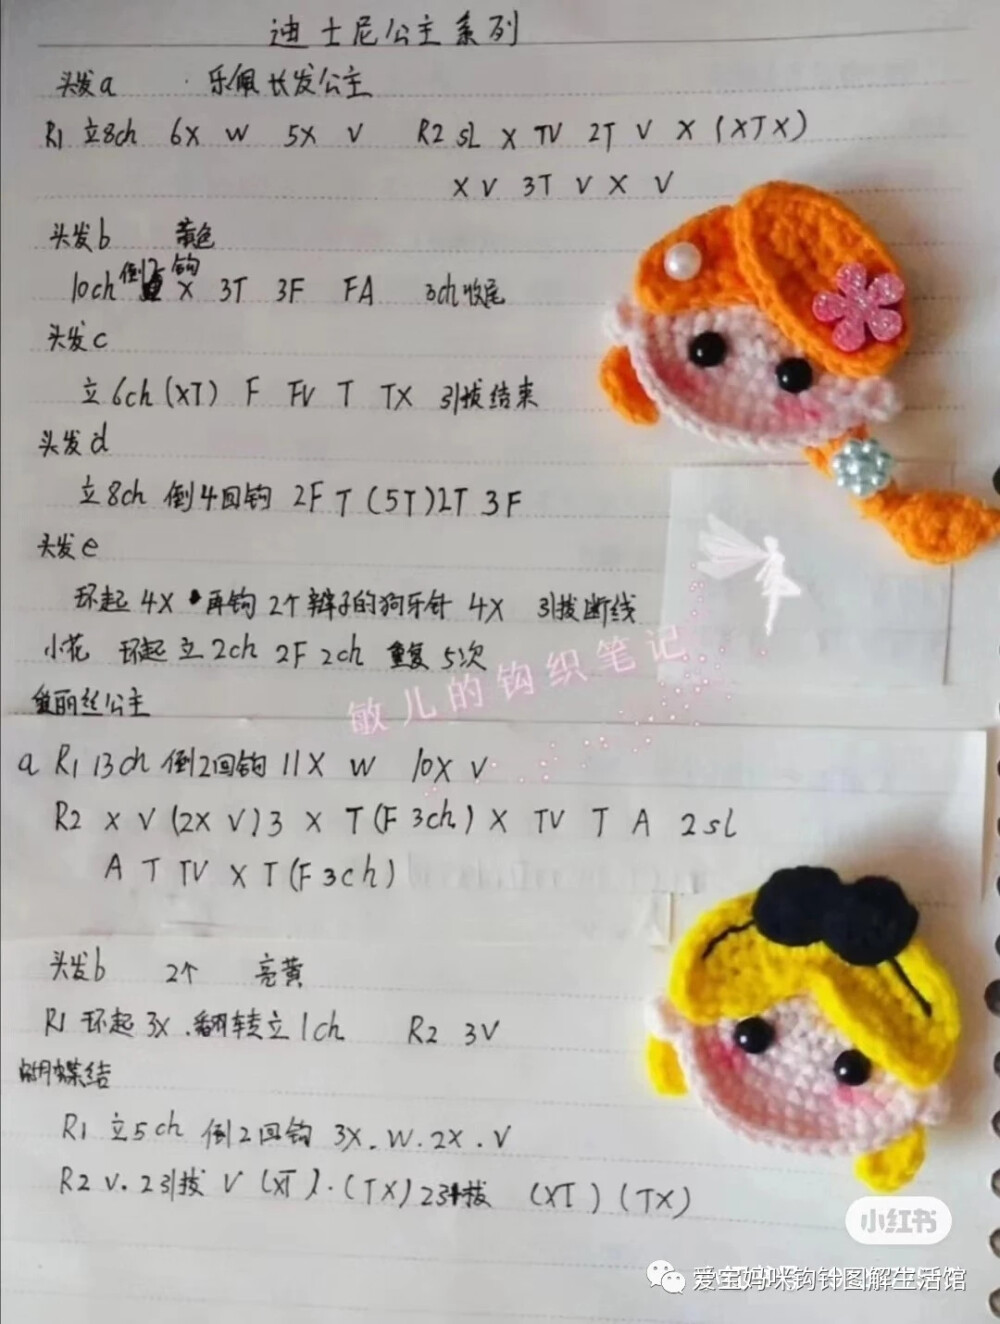 迪士尼公主系列
头发a 乐佩长发公主
R1 立8ch 6X W 5X V R2 SL X TV 2T V X (XTX)
X V 3T V X V
头发b 黄色
10ch 倒2钩 X 3T 3F FA 3ch收尾
头发c
立6ch (XT) F FV T TX 引拔结束
头发d
立8ch 倒4回钩 2F T (5T) 2T 3F
头发e
环起 4X 再钩 2个辫子的狗牙针 4X 引拔断线
小花 环起 立 2ch 2F 2ch 重复 5次
敏儿的钩织笔记
爱丽丝公主
a R1 13ch 倒2回钩 11X W 10X V
R2 X V (2X V)3 X T(F 3ch) X TV T A 2sl
A T TV X T(F3ch)
头发b 2个 亮黄
R1 环起 3X.翻转立1ch R2 3V
蝴蝶结
R1 立5ch 倒2回钩 3X.W.2X.V
R2 V.2引拔 V (XT).(TX) 2引拔 (XT) (TX)
小红书
爱宝妈咪钩针图解生活馆